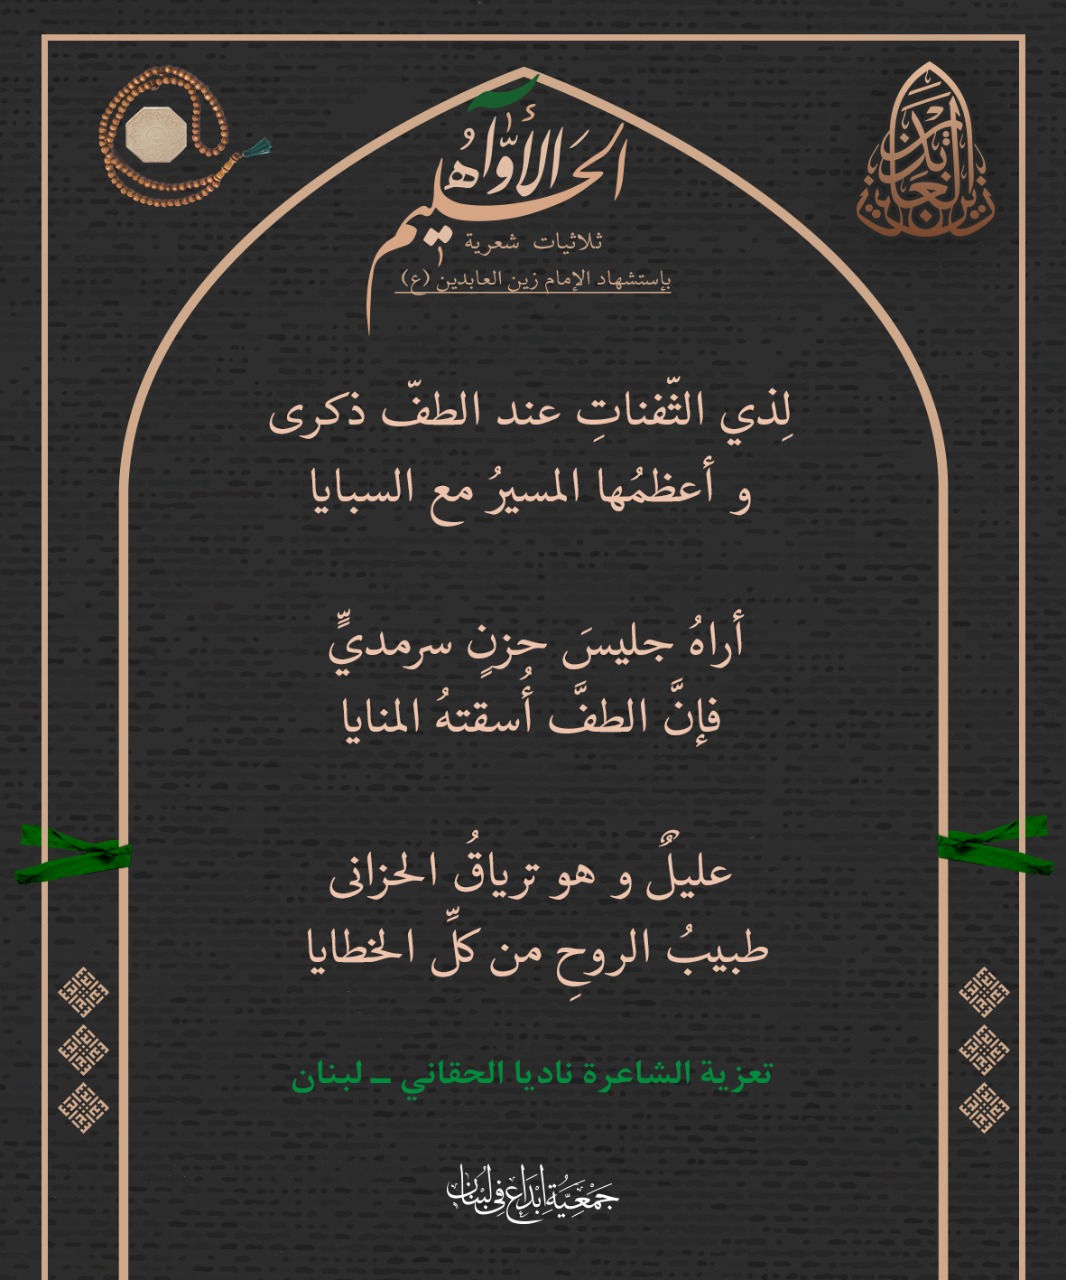 زين العابدين
الأوّاه الحليم
ثلاثيات شعرية
بإستشهاد الإمام زين العابدين (ع)
لِذي الثّفناتِ عند الطفّ ذكرى
و أعظمُها المسيرُ مع السبايا
أراهُ جليسَ حزنٍ سرمديٍّ
فإنَّ الطفَّ أُسقتهُ المنايا
عليلٌ و هو ترياقُ الحزانى
طبيبُ الروحِ من كلِّ الخطايا
تعزية الشاعرة ناديا الحقاني – لبنان
جَمْعِيَّةُ إبْدَاع فِي لُبْنَان